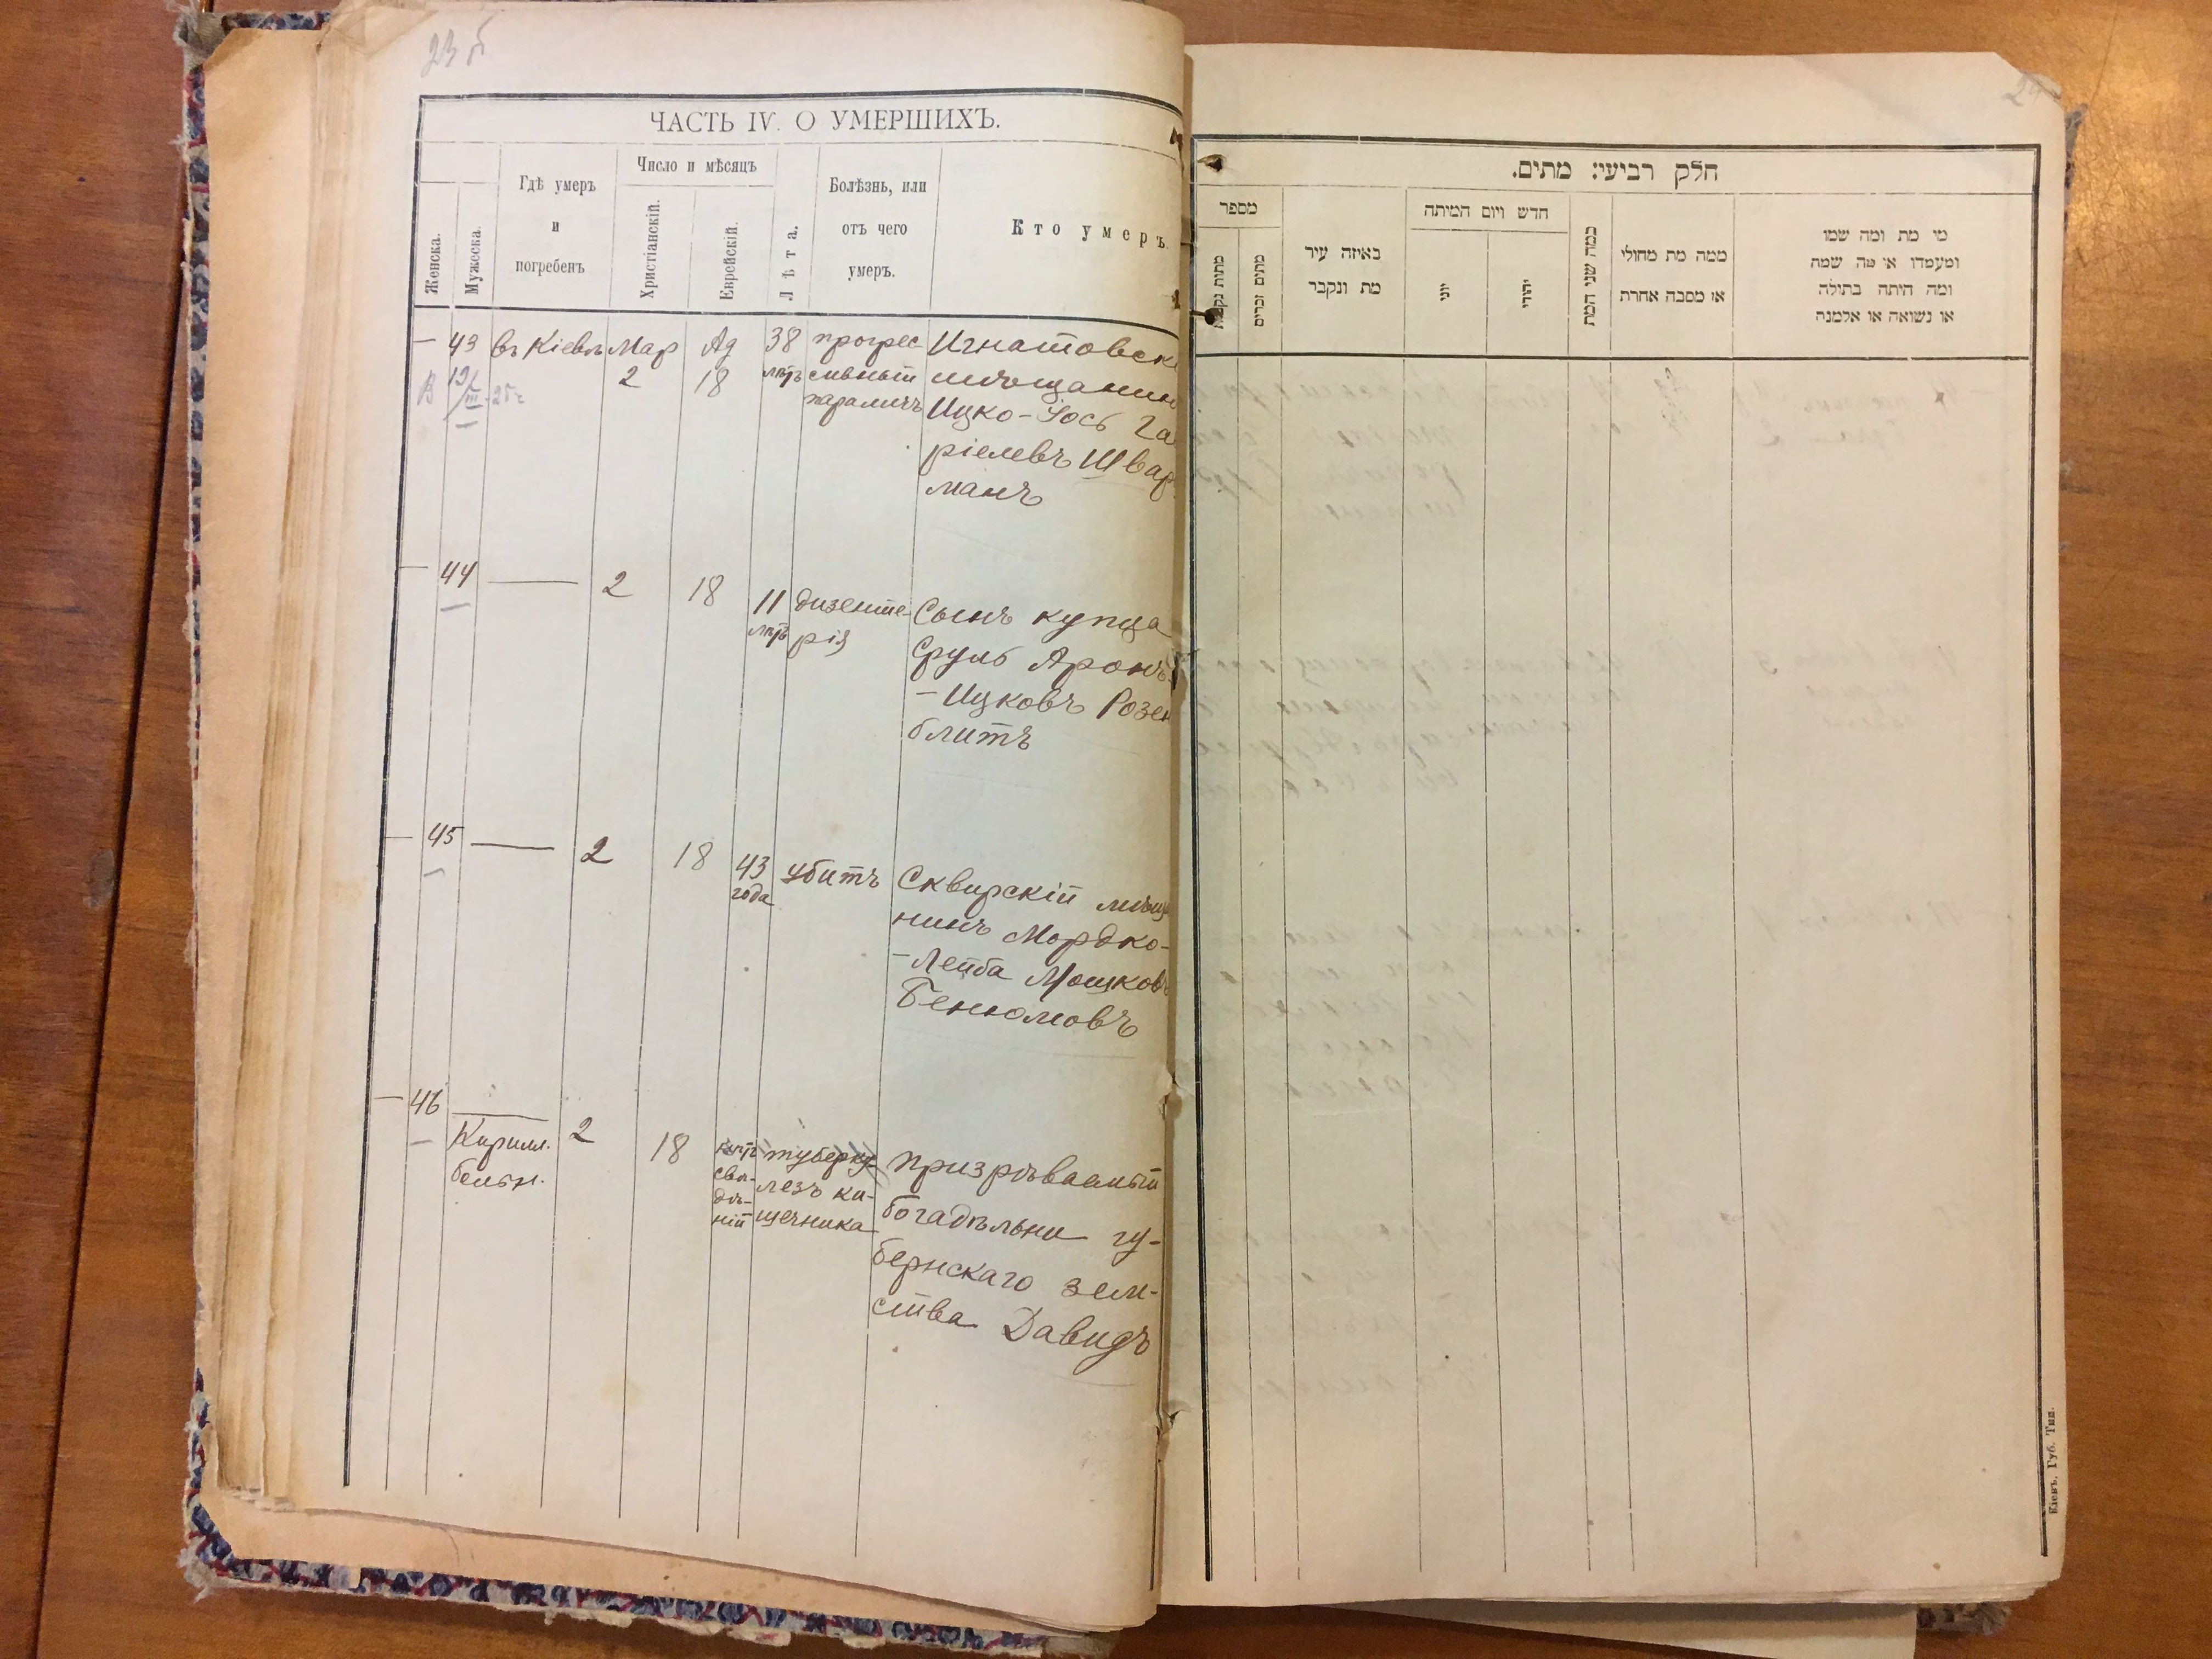 23 б
ЧАСТЬ IV. О УМЕРШИХЪ.
Женска.
Мужеска.
Гдѣ умеръ
и
погребенъ
Число и мѣсяцъ
Христіанскій.
Еврейскій.
Лѣта.
Болѣзнь, или
отъ чего
умеръ.
Кто умеръ.
— 43 въ Кіевѣ Мар Ад 38 прогрес Игнатовск
2 18 лѣтъ сивный мѣщанин
параличъ Ицко-Іось Га
ріелевъ Швар
манъ
— 44 — 2 18 11 дизенте- Сынъ купца
лѣтъ рія Сруль Аронъ
-Ицковъ Розен
блитъ
— 45 — 2 18 43 убитъ Сквирскій мѣща
года нинъ Мордко-
-Лейба Мошковъ
Бенюмовъ
— 46 — 2 18 туберку- призрѣваемый
Кирилл. свѣ- лезъ ки- богадѣльни гу-
больн. дѣ- шечника бернскаго зем-
ній ства Давидъ
24
חלק רביעי: מתים.
מספר
מתים זכרים
באיזה עיר
מת ונקבר
חדש ויום המיתה
יוני
יהודי
כמה שני המת
ממה מת מחולי
או מסבה אחרת
מי מת ומה שמו
ומעמדו או מה שמה
ומה היתה בתולה
או נשואה או אלמנה
Кіевъ, Губ. Тип.